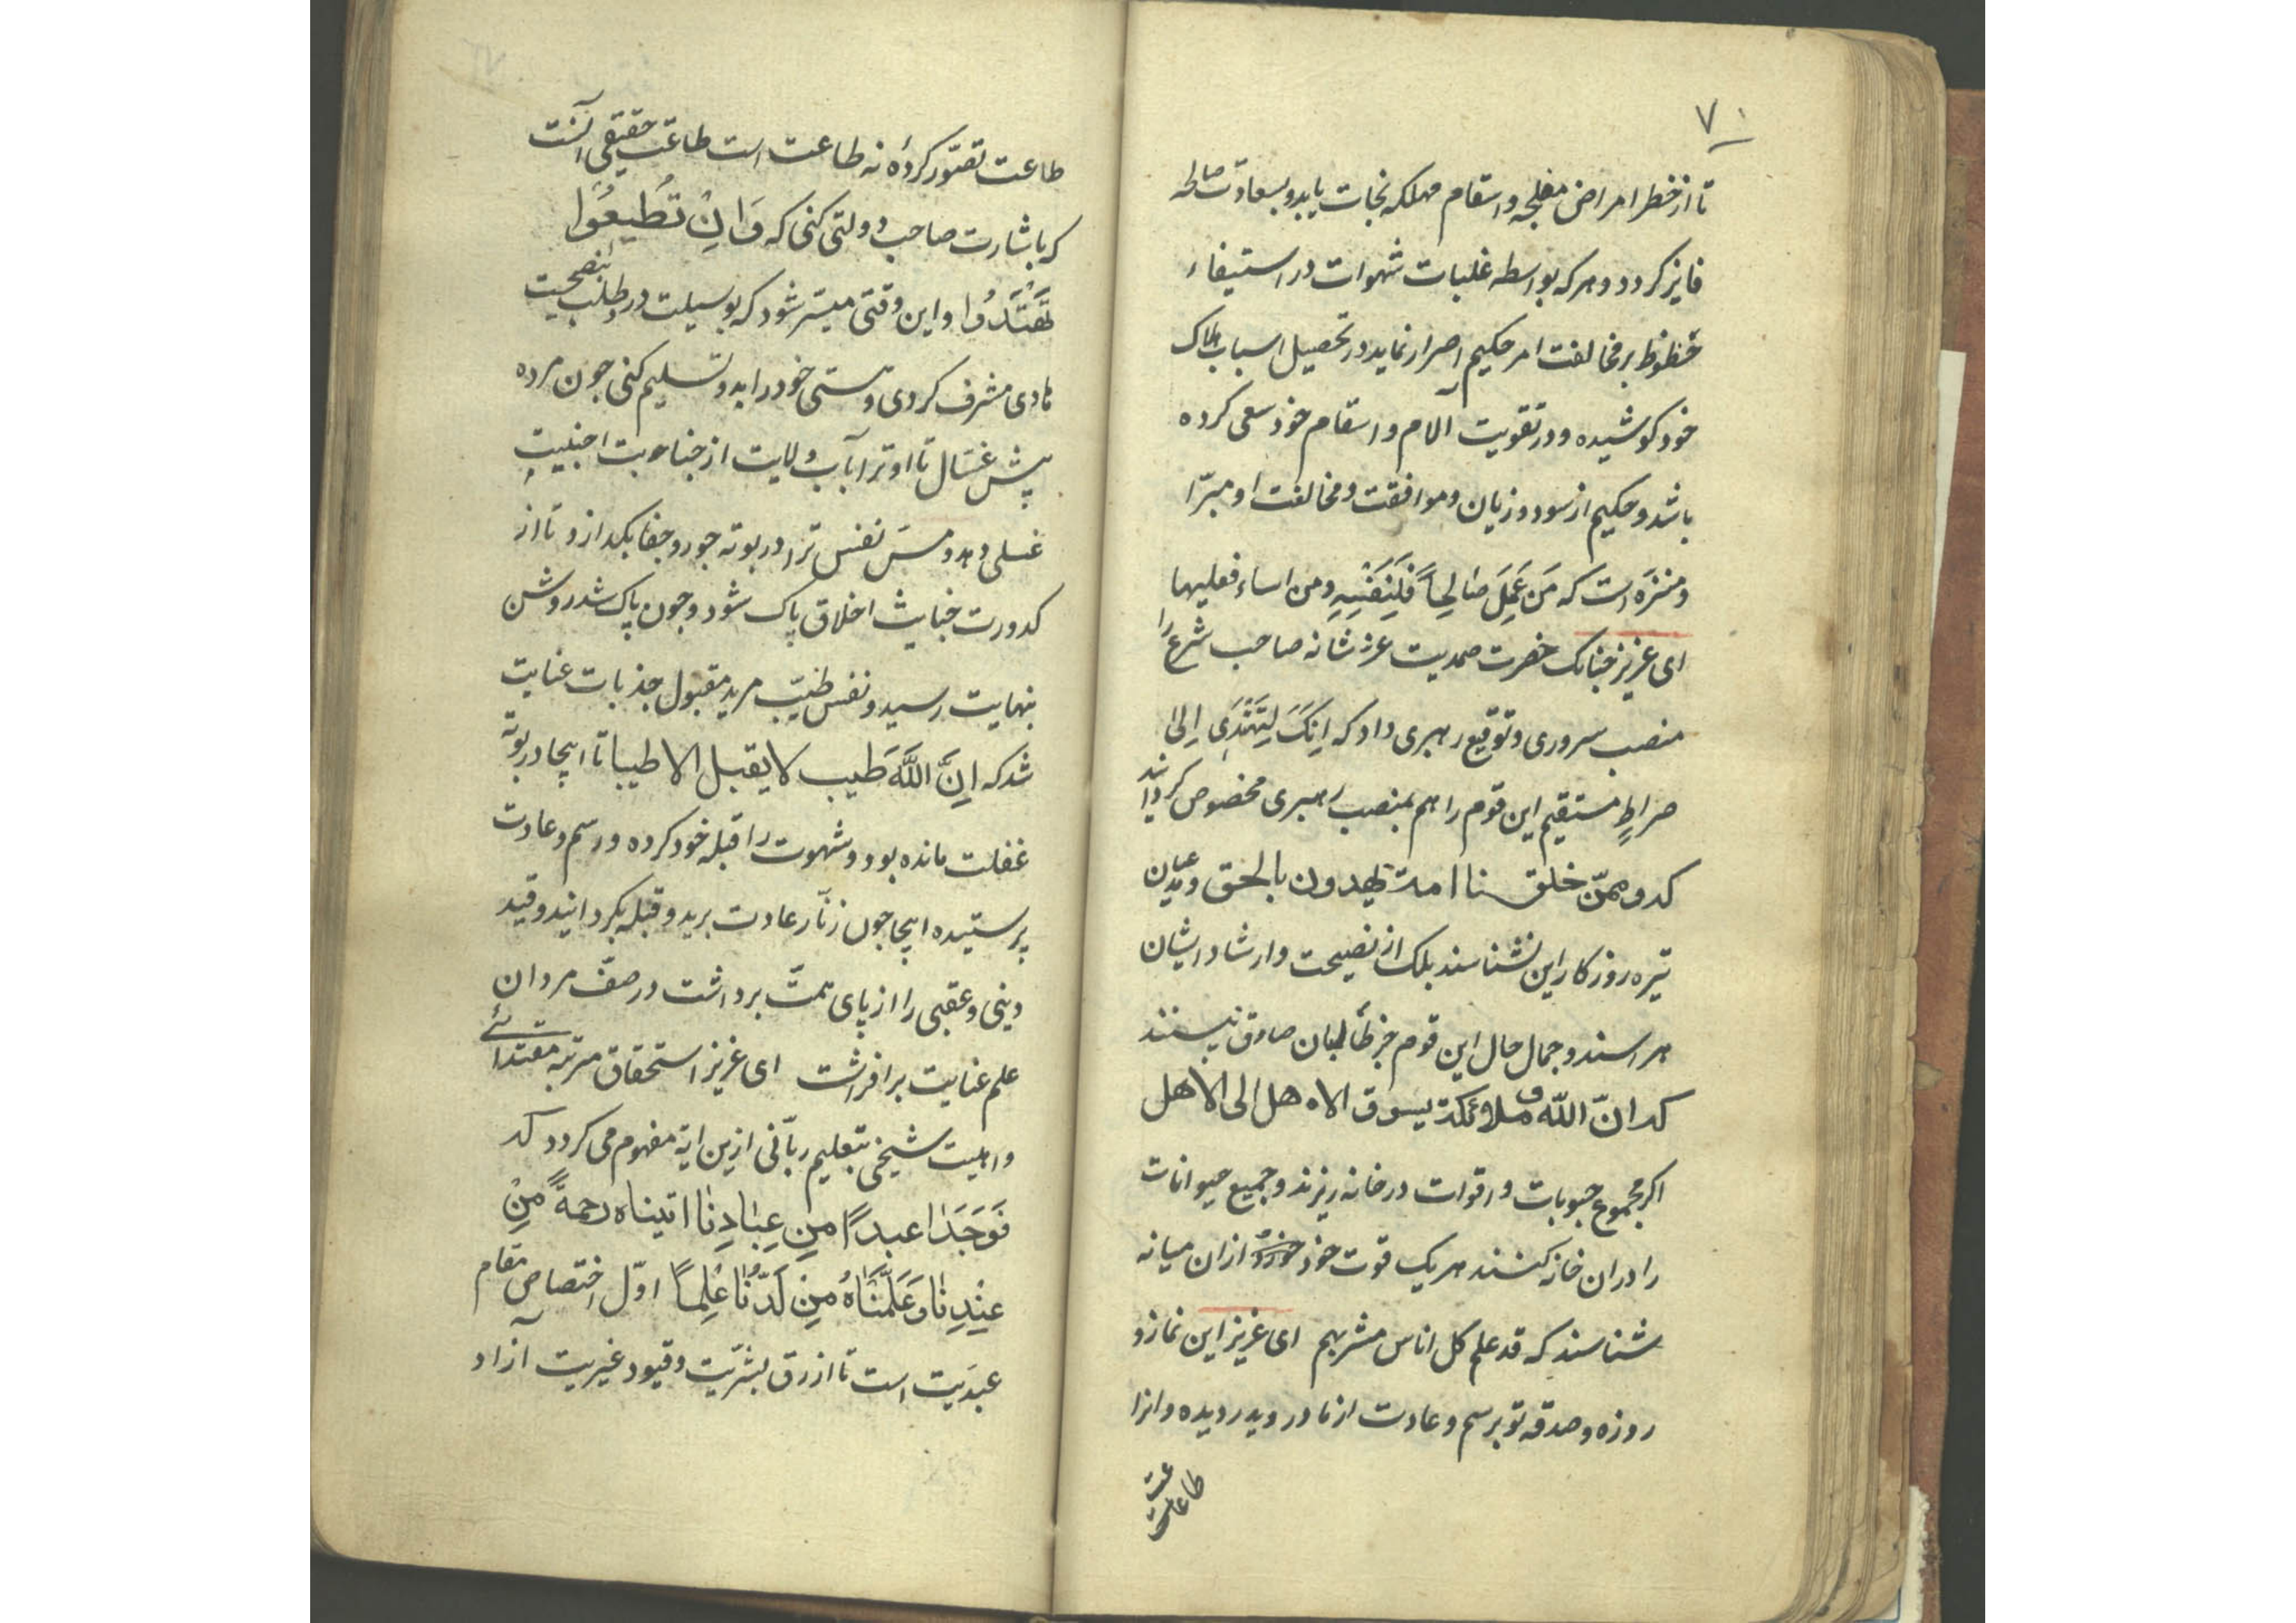 ۷۰
تا از خطر امراض مفلجه و اسقام مهلکه نجات یابد و بسعادت صاطه
فایز کردد و هر که بواسطه غلبات شهوات در استیفاء
حظوظ بر مخالفت امر حکیم اصرار نماید در تحصیل اسباب هلاک
خود کوشیده و در تقویت آلام و اسقام خود سعی کرده
باشد و حکیم از سود و زیان و موافقت و مخالفت او مبرّا
و منزه است که مَن عَمِلَ صالِحاً فَلِنَفْسِهِ و من اساء فعلیها
ای عزیز جنانک حضرت صمدیت عز شانه صاحب شرع را
منصب سروری و توقیع رهبری داد که اِنَکَ لِتَهْدَی اِلیٰ
صراطٍ مستقیم این قوم را هم بمنصب رهبری مخصوص کردانید
که و ممّن خلقنا امة یهدون بالحق و مدعیان
تیره روزکار این نشناسند بلک از نصیحت و ارشاد ایشان
هراسند و جمال حال این قوم جز طالبان صادق نبینند
که انّ اللّه و ملائکة یسوق الاهل الی الاهل
اکر مجموع حبوبات و اقوات در خانه ریزند و جمیع حیوانات
را در ان خانه کنند هر یک قوت خود از ان میانه
شناسند که قد علم کل اناس مشربهم ای عزیز این نماز و
روزه و صدقه تو برسم و عادت از مادر و پدر دیده و انرا
طاعت
طاعت تصوّر کردهٔ نه طاعت است طاعت حقیقی آنست
که باشارت صاحب دولتی کنی که وَ اِنْ تُطیعُوا
تَهْتَدُوا و این وقتی میسّر شود که بوسیلت در طلب بصحبت
هادی مشرف کردی و هستی خود را بدو تسلیم کنی جون مرده
پیش غسّال تا او ترا بآب ولایت از جنابت اجنبیت
غسلی دهد و مس نفس ترا در بوته جور و جفا بکدازد تا از
کدورت خبایث اخلاق پاک شود و جون پاک شد روشن
بنهایت رسید و نفس طیّب مرید مقبول جذبات عنایت
شد که اِنَّ اللَّهَ طَیب لا یقبل الا طیبا تا اینجا در بوتهٔ
غفلت مانده بود و شهوت را قبله خود کرده و رسم و عادت
پرستیده اینجا جون زنّار عادت برید و قبله بکردانید و قید
دینی و عقبی را از پای همّت برداشت در صفّ مردان
علم عنایت برافراشت ای عزیز استحقاق مرتبه مقتدائے
و اهلیت شیخی بتعلیم ربّانی ازین ایة مفهوم می کردد که
فَوَجَدَا عبداً مِن عِبادِنا اتیناه رحمةً مِنْ
عِنْدِنا وَ عَلَّمْناهُ مِن لَدُنّا عِلماً اوّل اختصاص مقام
عبدیت است تا از رق بشرّیت و قیود غیریت آزاد